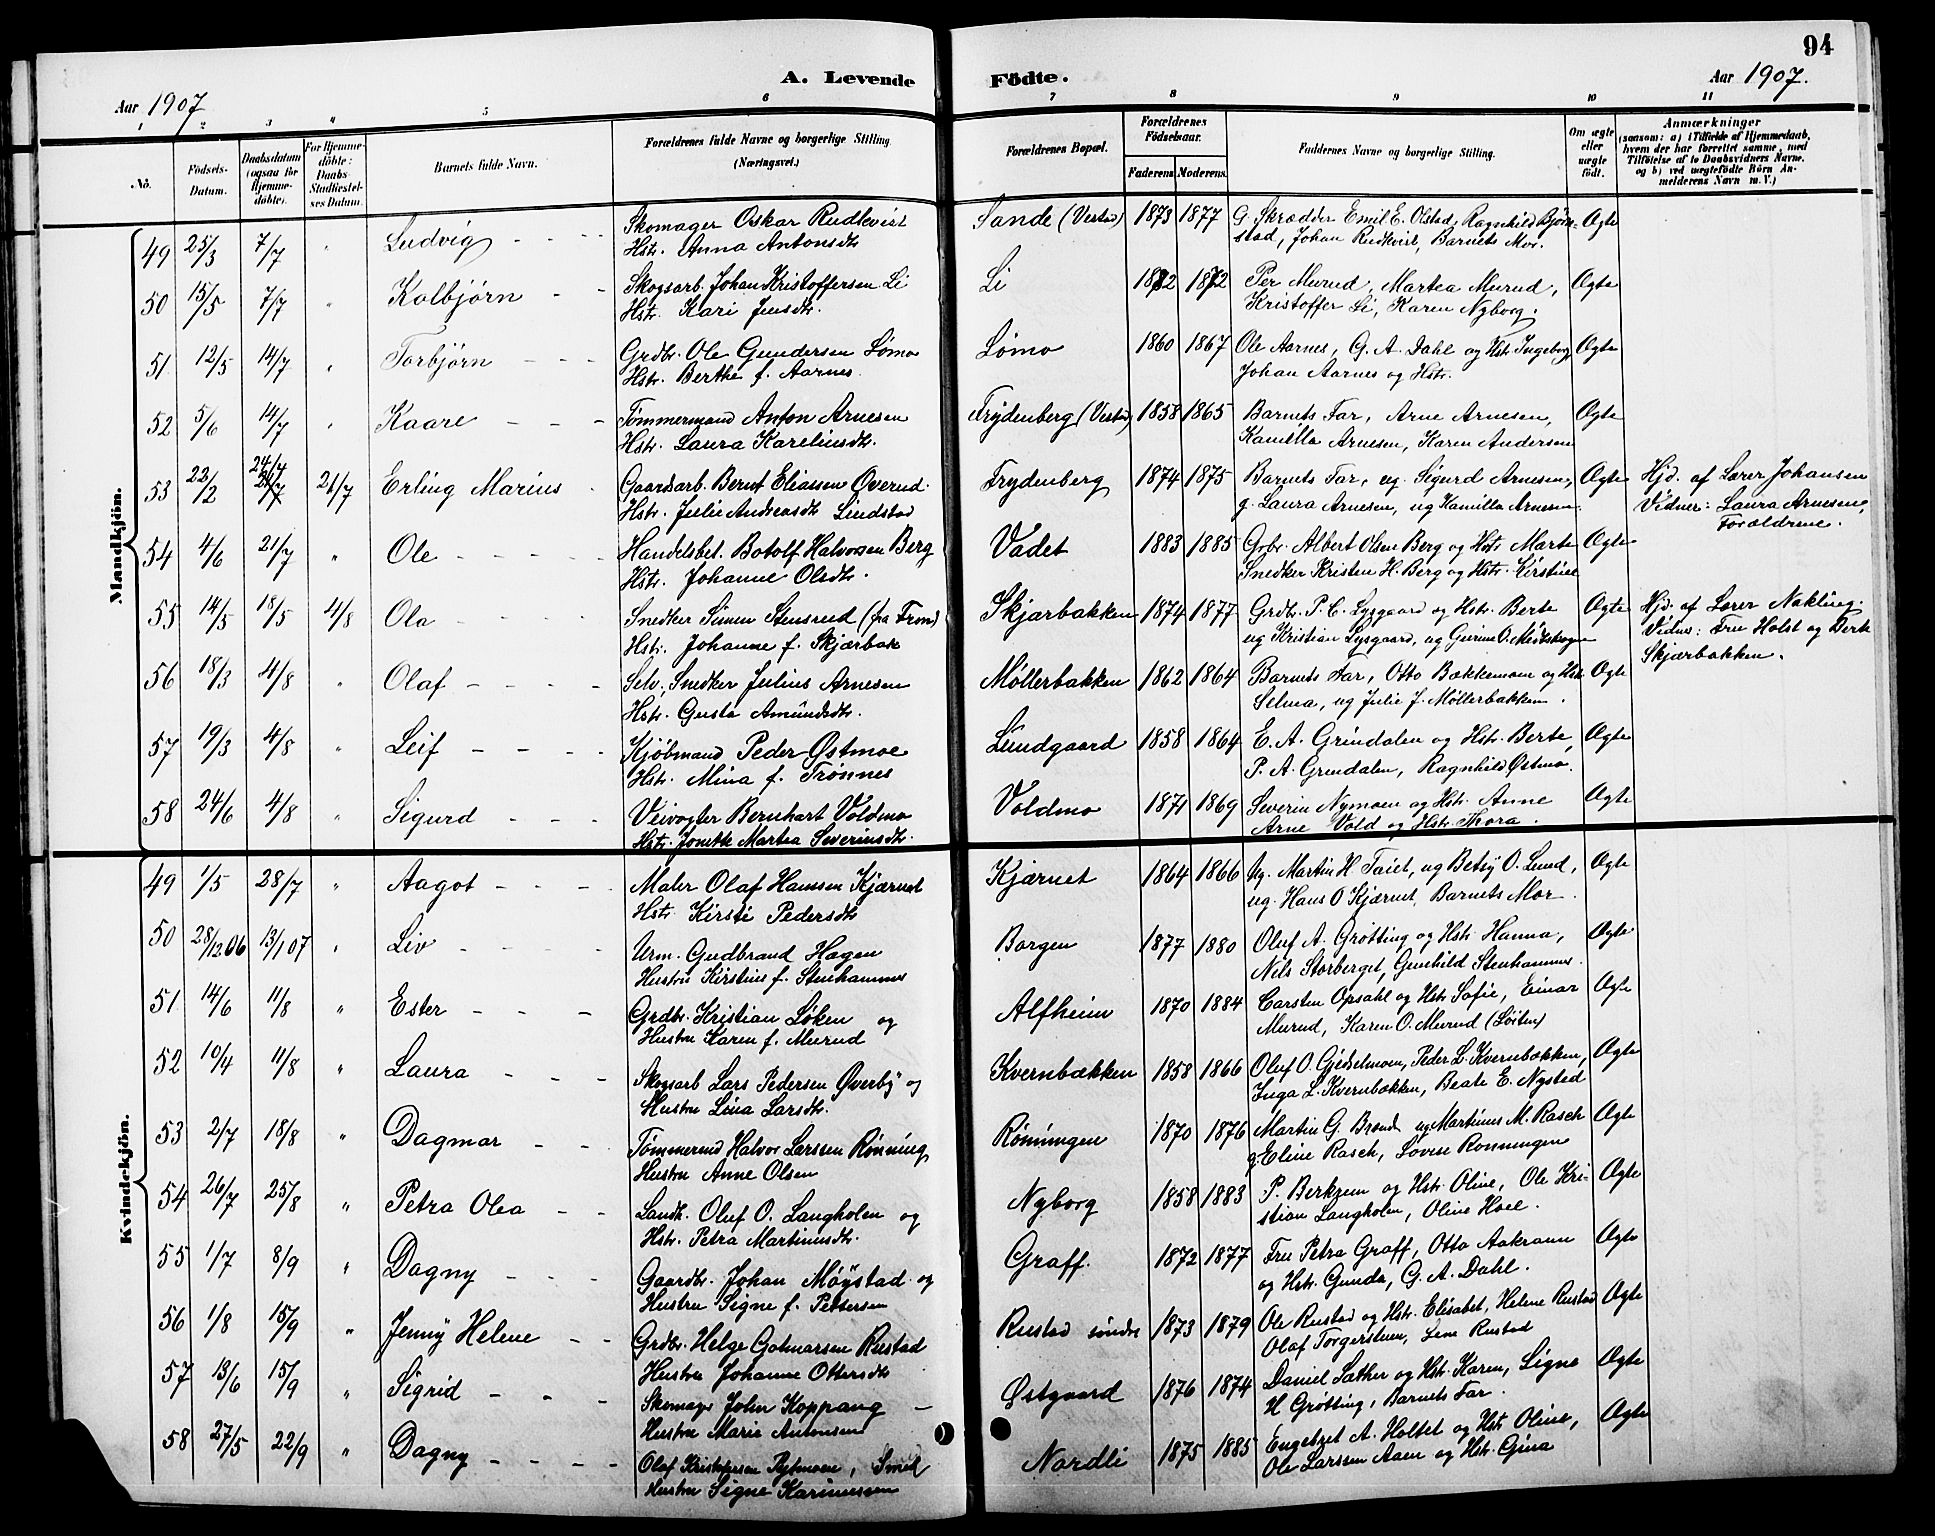 94
A. Levende Födte.
Aar 1907
Aar 1907.
1 2 3 4 5 6 7 8 9 10 11
No.
Födsels-Datum.
Daabsdatum (ogsaa for Hjemme-döbte).
For Hjemme-döbte: Daabs-Stadfæstel-ses Datum.
Barnets fulde Navn.
Forældrenes fulde Navne og borgerlige Stilling (Næringsvei.)
Forældrenes Bopæl.
Forældrenes Födselsaar.
Faderens Moderens.
Faddernes Navne og borgerlige Stilling.
Om ægte eller uægte födt.
Anmærkninger
(saasom: a) i Tilfælde af Hjemmedaab, hvem der har forrettet samme, med Tilföielse af to Daabsvidners Navne. og b) ved uægtefödte Börn Anmelderens Navn m. V.)
Mandkjön.
49 25/3 7/7 " Ludvig Skomager Oskar Rudkvist Sande (Vestad) 1873 1877 G. Skrædder Emil E. Olstad, Ragnhild Bjørn- Ægte
Hstr. Anna Antonsdtr stad, Johan Rudkvist, Barnets Mor.
50 15/5 7/7 " Kolbjørn Skogsarb. Johan Kristoffersen Li Li 1872 Per Murud, Martea Murud, Ægte
Hstr. Kari Jensdtr. Kristoffer Li, Karen Nyborg.
51 12/5 14/7 " Torbjørn Grdbr. Ole Gundersen Lømo Lømo 1860 1867 Ole Aarnes, G. A. Dahl og Hstr Ingeborg Ægte
Hstr. Berthe f. Aarnes. Johan Aarnes og Hstr.
52 5/6 14/7 " Kaare Tømmermand Anton Arnesen Frydenberg (Vestad) 1858 1865 Barnets Far, Arne Arnesen, Ægte
Hstr. Laura Kareliusdtr. Kamilla Arnesen, Karen Andersen
53 22/2 24/4 21/7 Erling Marius Gaardsarb. Bernt Eliassen Overud. Frydenberg 1874 1875 Barnets Far, ug. Sigurd Arnesen, Ægte Hjd. af Lærer Johansen
Hstr. Julie Andreasdtr Lindstad g. Laura Arnesen, ug Kamilla Arnesen. Vidner: Laura Arnesen,
Forældrene.
54 4/6 21/7 " Ole Handelsbet. Botolf Halvorsen Berg Vadet 1883 1885 Grbr. Albert Olsen Berg og Hstr Marte Ægte
Hstr. Johanne Olsdtr. Snedker Kristen H. Berg og Hstr. Kirstine
55 14/5 18/5 4/8 Ola Snedker Simen Stensrud (fra Tron) Skjærbakken 1874 1877 Grdbr. P. C. Lysgaard og Hstr. Berte Ægte Hjd. af Lærer Nakling.
Hstr. Johanne f. Skjærbak ug Kristian Lysgaard, ug Vidner: Fru Holst og Berte
Skjærbakken.
56 18/3 4/8 " Olaf Selv. Snedker Julius Arnesen Møllerbakken 1862 1864 Barnets Far, Otto Bækkemoen og Hstr Ægte
Hstr. Gusta Amundsdtr. Selma, ug Julie J. Møllerbakken.
57 19/3 4/8 " Leif Kjøbmand Peder Østmoe Lundgaard 1858 1864 E. A. Grindalen og Hstr. Berte, Ægte
Hstr. Mina f. Trønnes P. A. Grindalen, Ragnhild Østmo.
58 24/6 4/8 " Sigurd Veivogter Bernhart Voldmo Voldmo 1871 1869 Severin Nymoen og Hstr. Anne Ægte
Hstr. Jonette Martea Severinsdtr. Arne Vold og Hstr. Thora.
Kvindekjön.
49 1/5 28/7 " Aagot Maler Olaf Hansen Kjærnet Kjærnet 1864 1866 Ug. Martin H. Taiet, ug Betsy O. Lund, Ægte
Hstr. Kirsti Pedersdtr ug. Hans O Kjærnet, Barnets Mor.
50 28/12 06 13/1 07 " Liv Urm. Gudbrand Hagen Borgen 1877 1880 Oluf A. Grøtting og Hstr. Hanna, Ægte
Hustru Kirstine f. Stenhammer Nels Storberget, Gunhild Stenhammer.
51 14/6 11/8 " Ester Grdbr. Kristian Løken og Alfheim 1870 1884 Carsten Opsahl og Hstr Sofie, Einar Ægte
Hustru Karen f. Murud Murud, Karen O. Murud (Løiten)
52 10/4 11/8 " Laura Skogsarb Lars Pedersen Øverby og Kvernbækken 1858 1866 Oluf O. Gjedelmoen, Peder L. Kvernbækken, Ægte
Hustru Lina Larsdtr. Inga L. Kvernbækken, Beate E. Nysted
53 2/7 18/8 " Dagmar Tømmermd Halvor Larssen Rønning Rønningen 1870 1876 Martin G. Brænd ug Martinus M. Rasch Ægte
Hustru Anne Olsen g. Eline Rasch, Lovise Rønningen
54 26/7 25/8 " Petra Olea Landh. Oluf O. Langholen og Nyborg 1858 1883 P. Berkrem og Hstr. Oline, Ole Kri- Ægte
Hstr. Petra Martinusdtr. stian Langholen, Oline Hoel.
55 1/7 8/9 " Dagny Gaardbr. Johan Møystad og Graff. 1872 1877 Fru Petra Graff, Otto Aakrann Ægte
Hustru Signe f. Pettersen og Hstr. Gunda, G. A. Dahl.
56 1/8 15/9 " Jenny Helene Grdbr. Helge Gotmarsen Rustad Rustad søndre 1873 1879 Ole Rustad og Hstr. Elisabet, Helene Rustad Ægte
Hustru Johanne Ottersdtr Olaf Torgerstuen, Lene Rustad
57 13/6 15/9 " Sigrid Skomager John Koppang Østgaard 1876 1874 Daniel Sæther og Hstr. Karen, Signe Ægte
Hustru Marie Antonsen H Grøtting, Barnets Far.
58 27/5 22/9 " Dagny Olaf Kristofersen Rytmoen, Smed Nordli 1875 1885 Engebret A. Holtet og Hstr. Oline, Ægte
Hustru Signe Karinussen Ole Larssen Aaen og Hstr. Gina